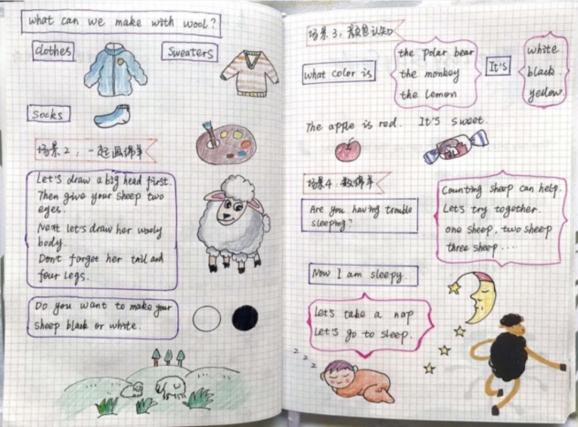 what can we make with wool?
clothes
sweaters
socks
场景2,一起画绵羊
Let's draw a big head first.
Then give your sheep two
eyes.
Next let's draw her wooly
body.
Don't forget her tail and
four legs.
Do you want to make your
sheep black or white.
场景3,颜色认知
what color is
the polar bear
the monkey
the lemon
It's
white
black
yellow
The apple is red. It's sweet.
场景4.数绵羊
Are you having trouble
sleeping?
Counting sheep can help.
Let's try together.
one sheep, two sheep
three sheep ....
Now I am sleepy
Let's take a nap
Let's go to sleep.
z z z